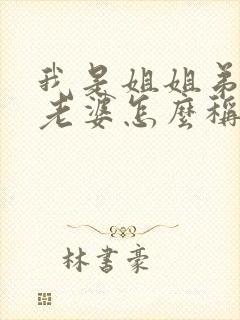 我是姐姐弟
老婆怎麼稱
林書豪